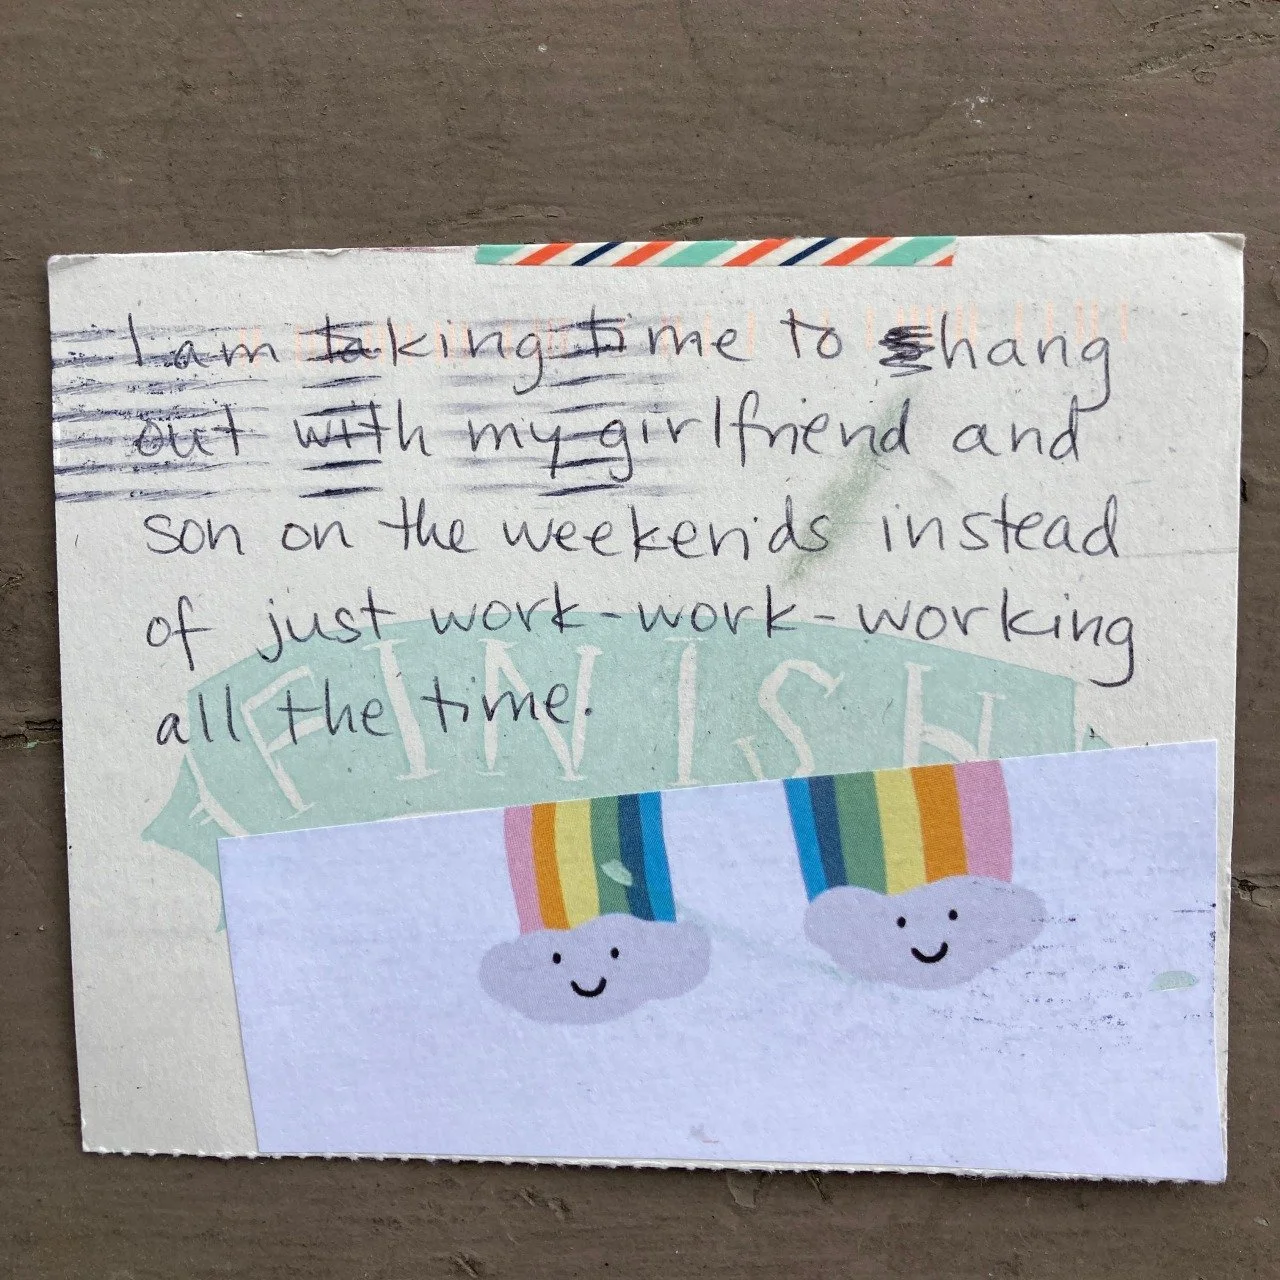 I am taking time to hang
out with my girlfriend and
son on the weekends instead
of just work-work-working
all the time.
FINISH